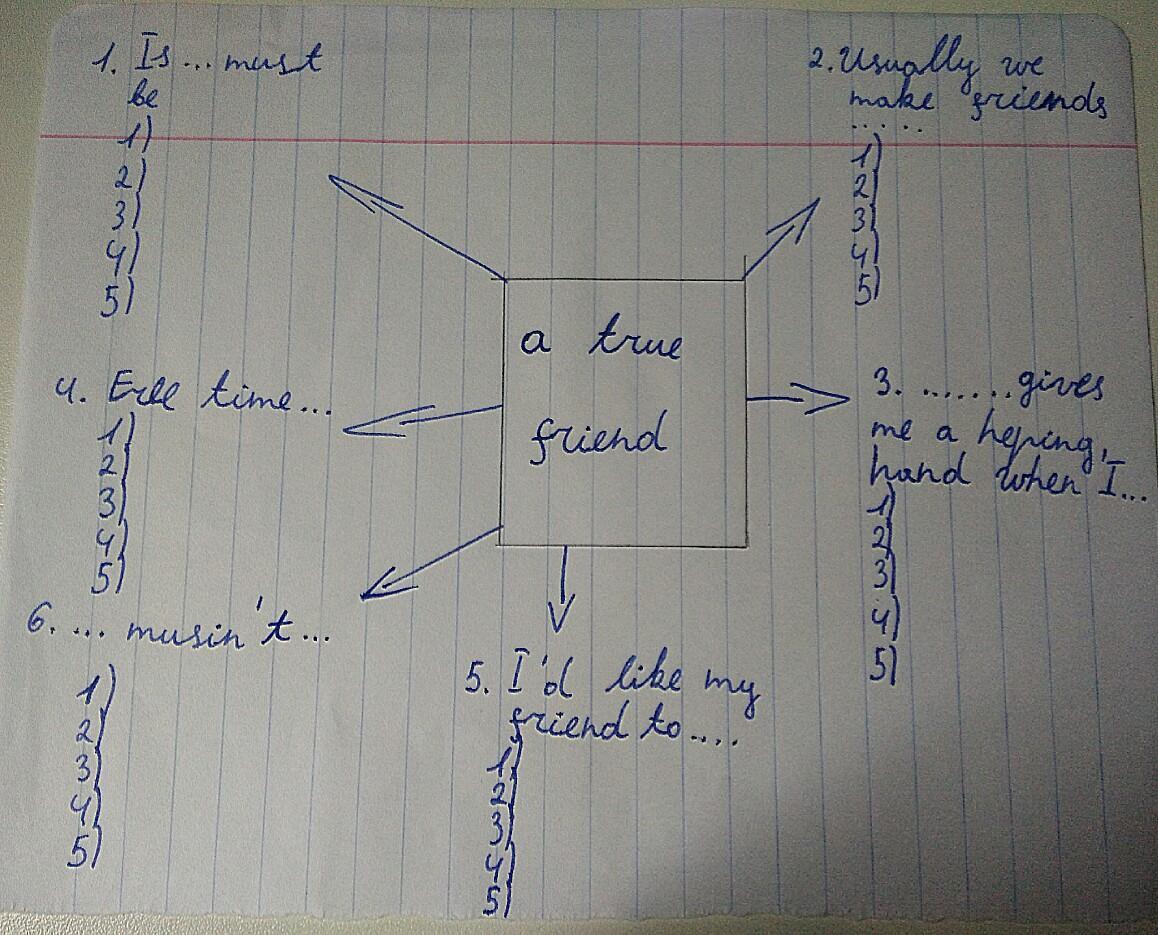 1. Is... must
be
1)
2)
3)
4)
5)
2. Usually we
make friends
.....
1)
2)
3)
4)
5)
a true
friend
3. .......gives
me a heping
hand when I...
1)
2)
3)
4)
5)
4. Free time...
1)
2)
3)
4)
5)
5. I'd like my
friend to....
1)
2)
3)
4)
5)
6. ... musin't...
1)
2)
3)
4)
5)